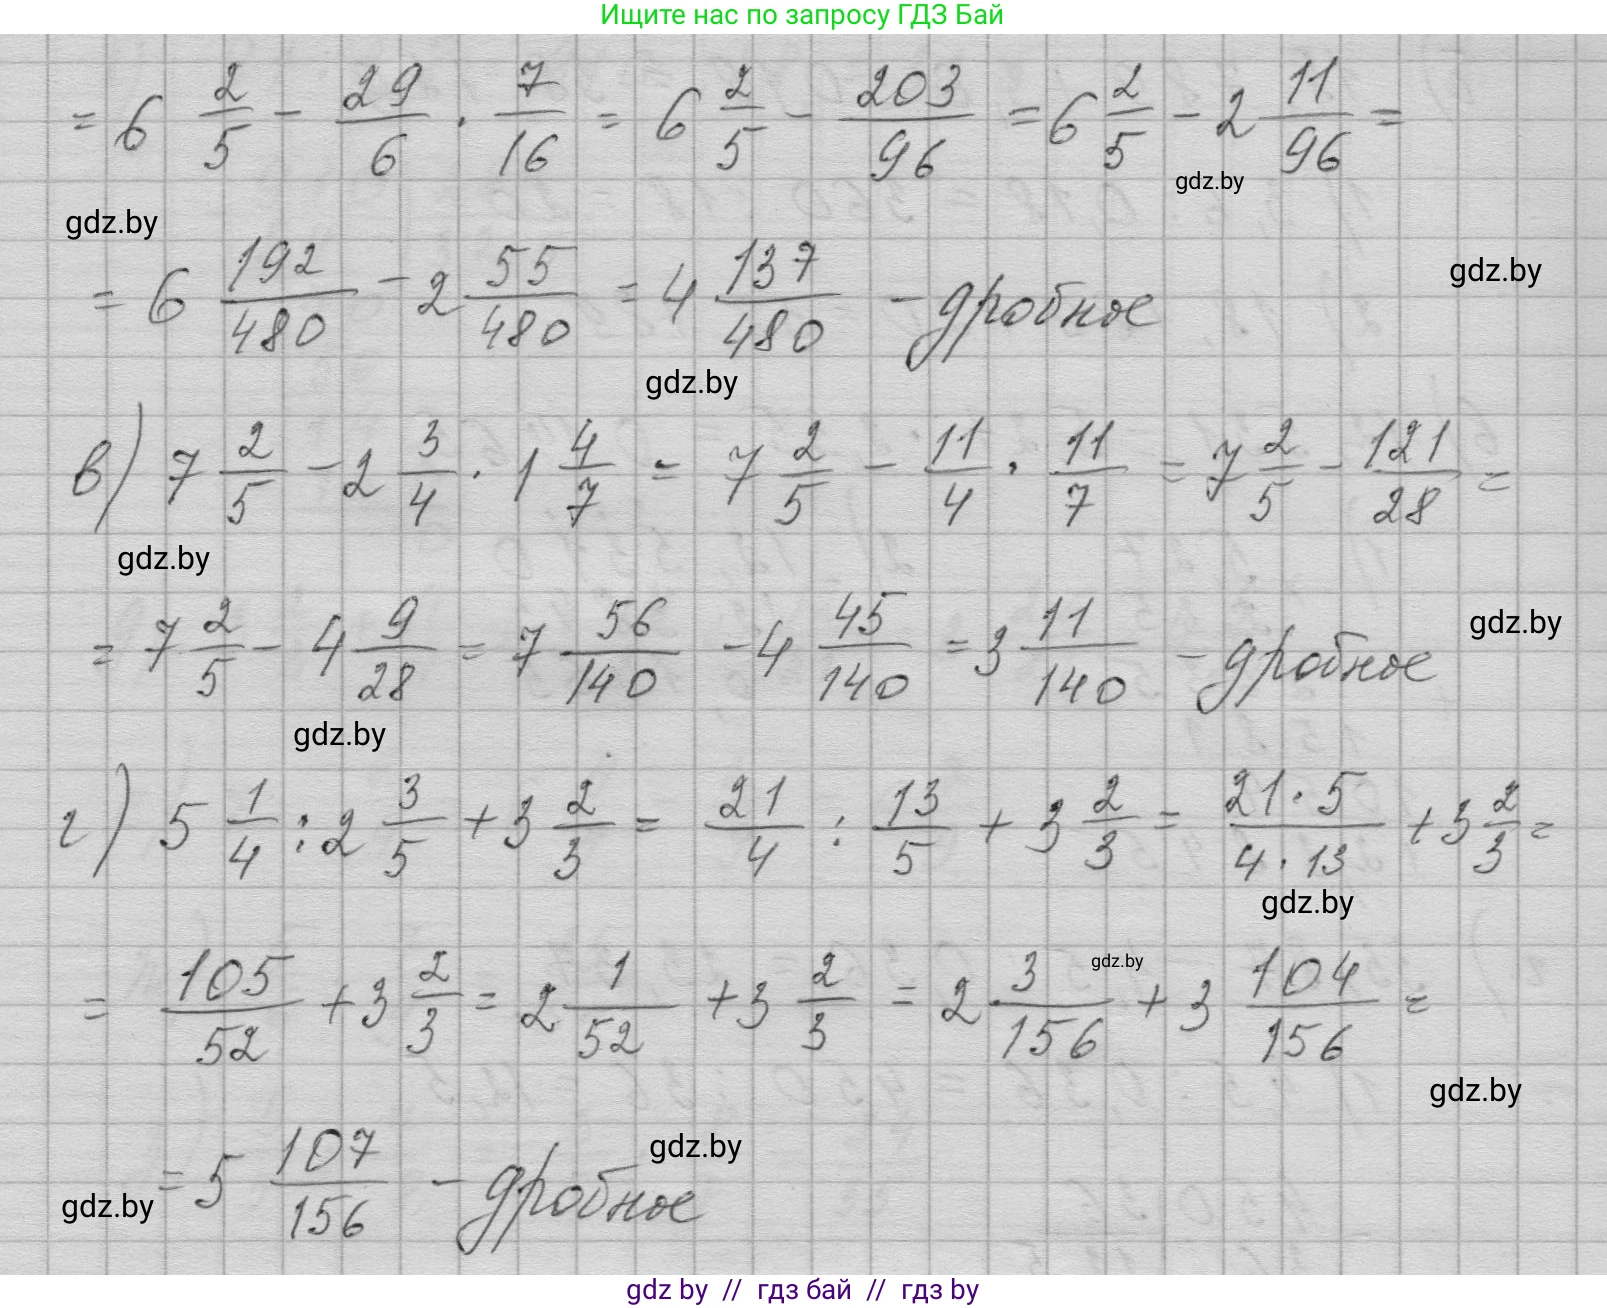 Ищите нас по запросу ГДЗ Бай
= 6 2/5 - 29/6 · 7/16 = 6 2/5 - 203/96 = 6 2/5 - 2 11/96 =
gdz.by
gdz.by
= 6 192/480 - 2 55/480 = 4 137/480 - дробное
gdz.by
gdz.by
в) 7 2/5 - 2 3/4 · 1 4/7 = 7 2/5 - 11/4 · 11/7 = 7 2/5 - 121/28 =
gdz.by
= 7 2/5 - 4 9/28 = 7 56/140 - 4 45/140 = 3 11/140 - дробное
gdz.by
gdz.by
г) 5 1/4 : 2 3/5 + 3 2/3 = 21/4 : 13/5 + 3 2/3 = 21·5/4·13 + 3 2/3 =
gdz.by
gdz.by
= 105/52 + 3 2/3 = 2 1/52 + 3 2/3 = 2 3/156 + 3 104/156 =
gdz.by
gdz.by
= 5 107/156 - дробное
gdz.by
gdz by // гдз бай // gdz by